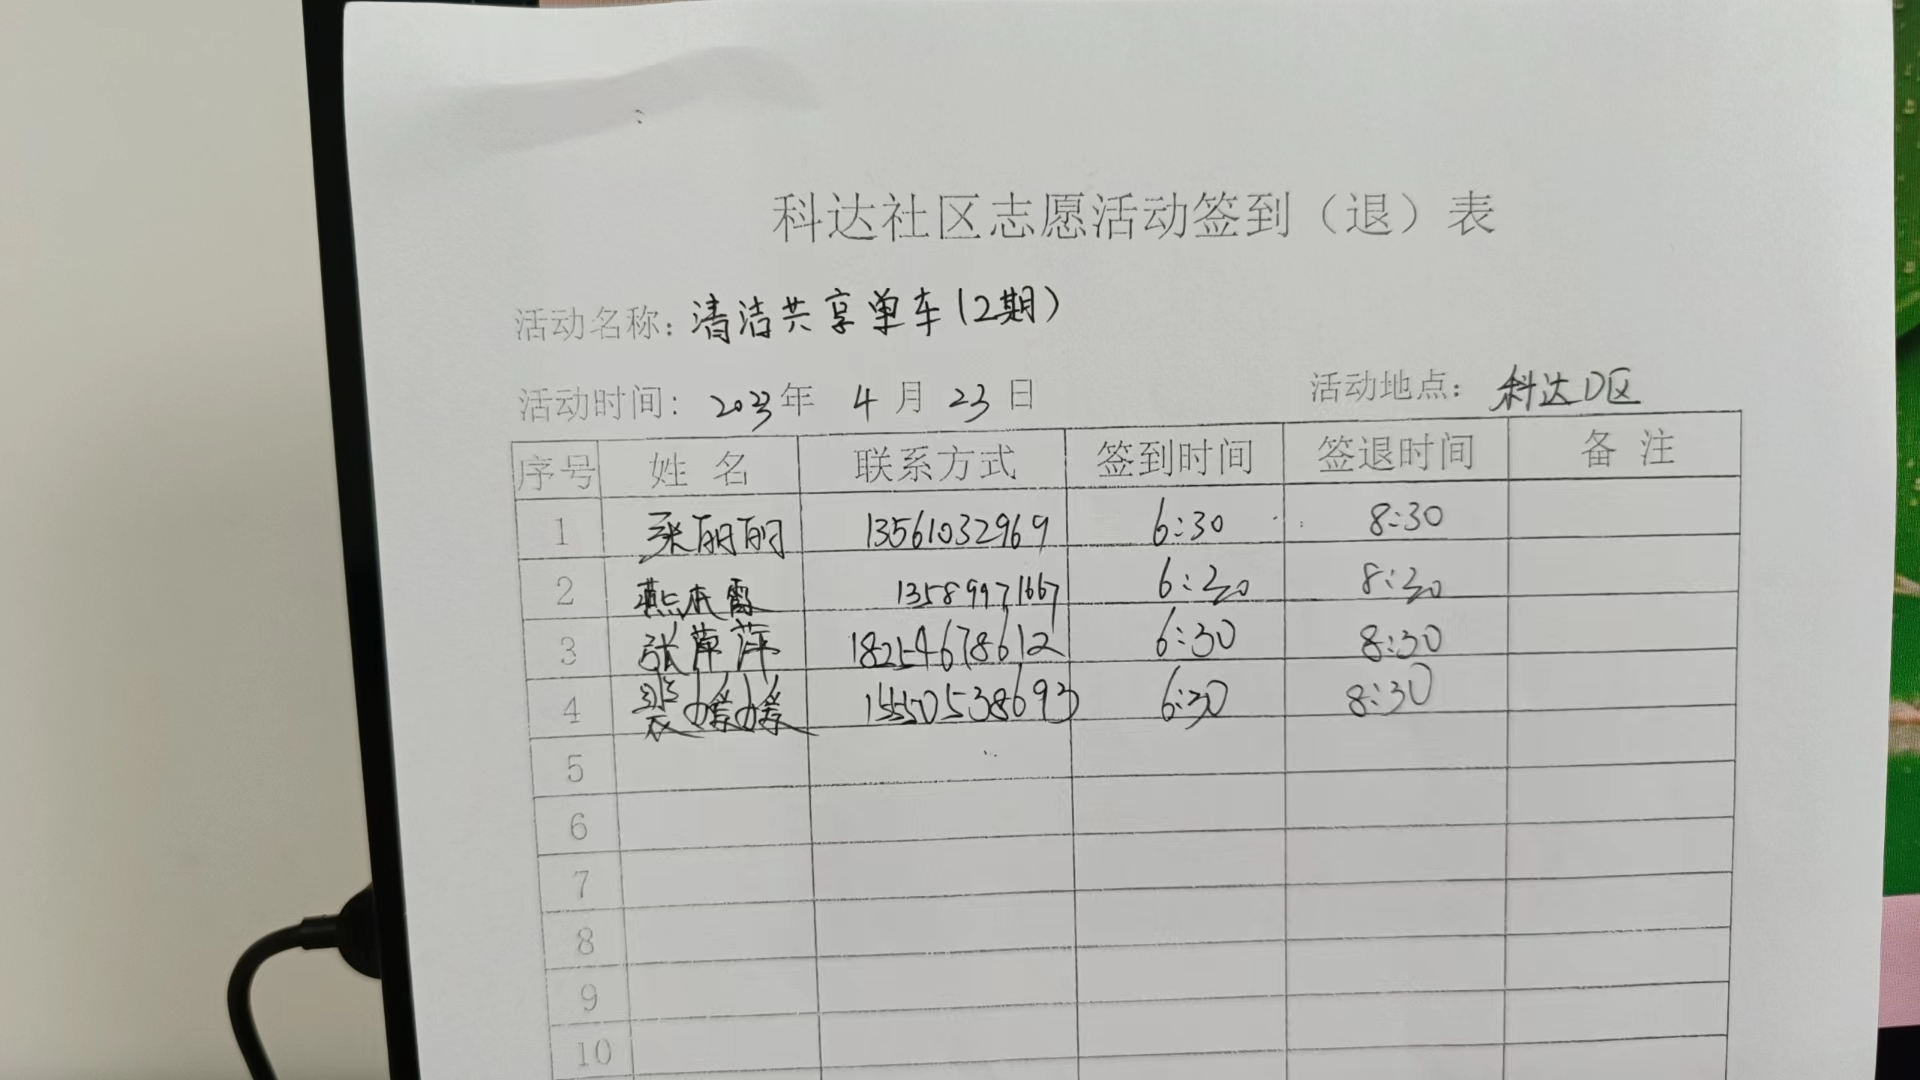 科达社区志愿活动签到（退）表
活动名称：清洁共享单车（2期）
活动时间：2023年 4月 23日 活动地点：科达D区
序号 姓名 联系方式 签到时间 签退时间 备注
1 丽丽 13561032969 6:30 8:30
2 燕 霞 13589971667 6:30 8:30
3 张萍萍 18254678612 6:30 8:30
4 裴媛媛 15550538693 6:30 8:30
5
6
7
8
9
10